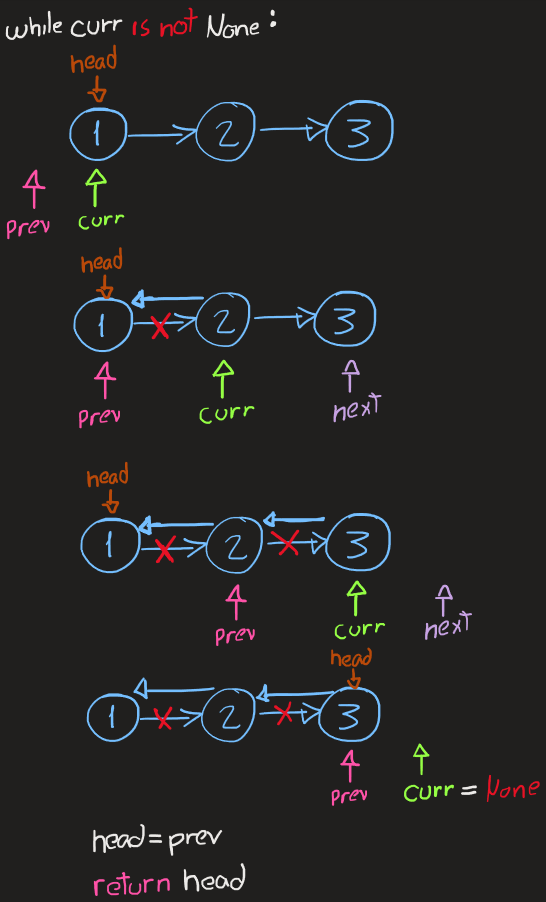 while curr is not None:
head
1 2 3
prev curr
head
1 2 3
prev curr next
head
1 2 3
prev curr next
head
1 2 3
prev curr = None
head = prev
return head